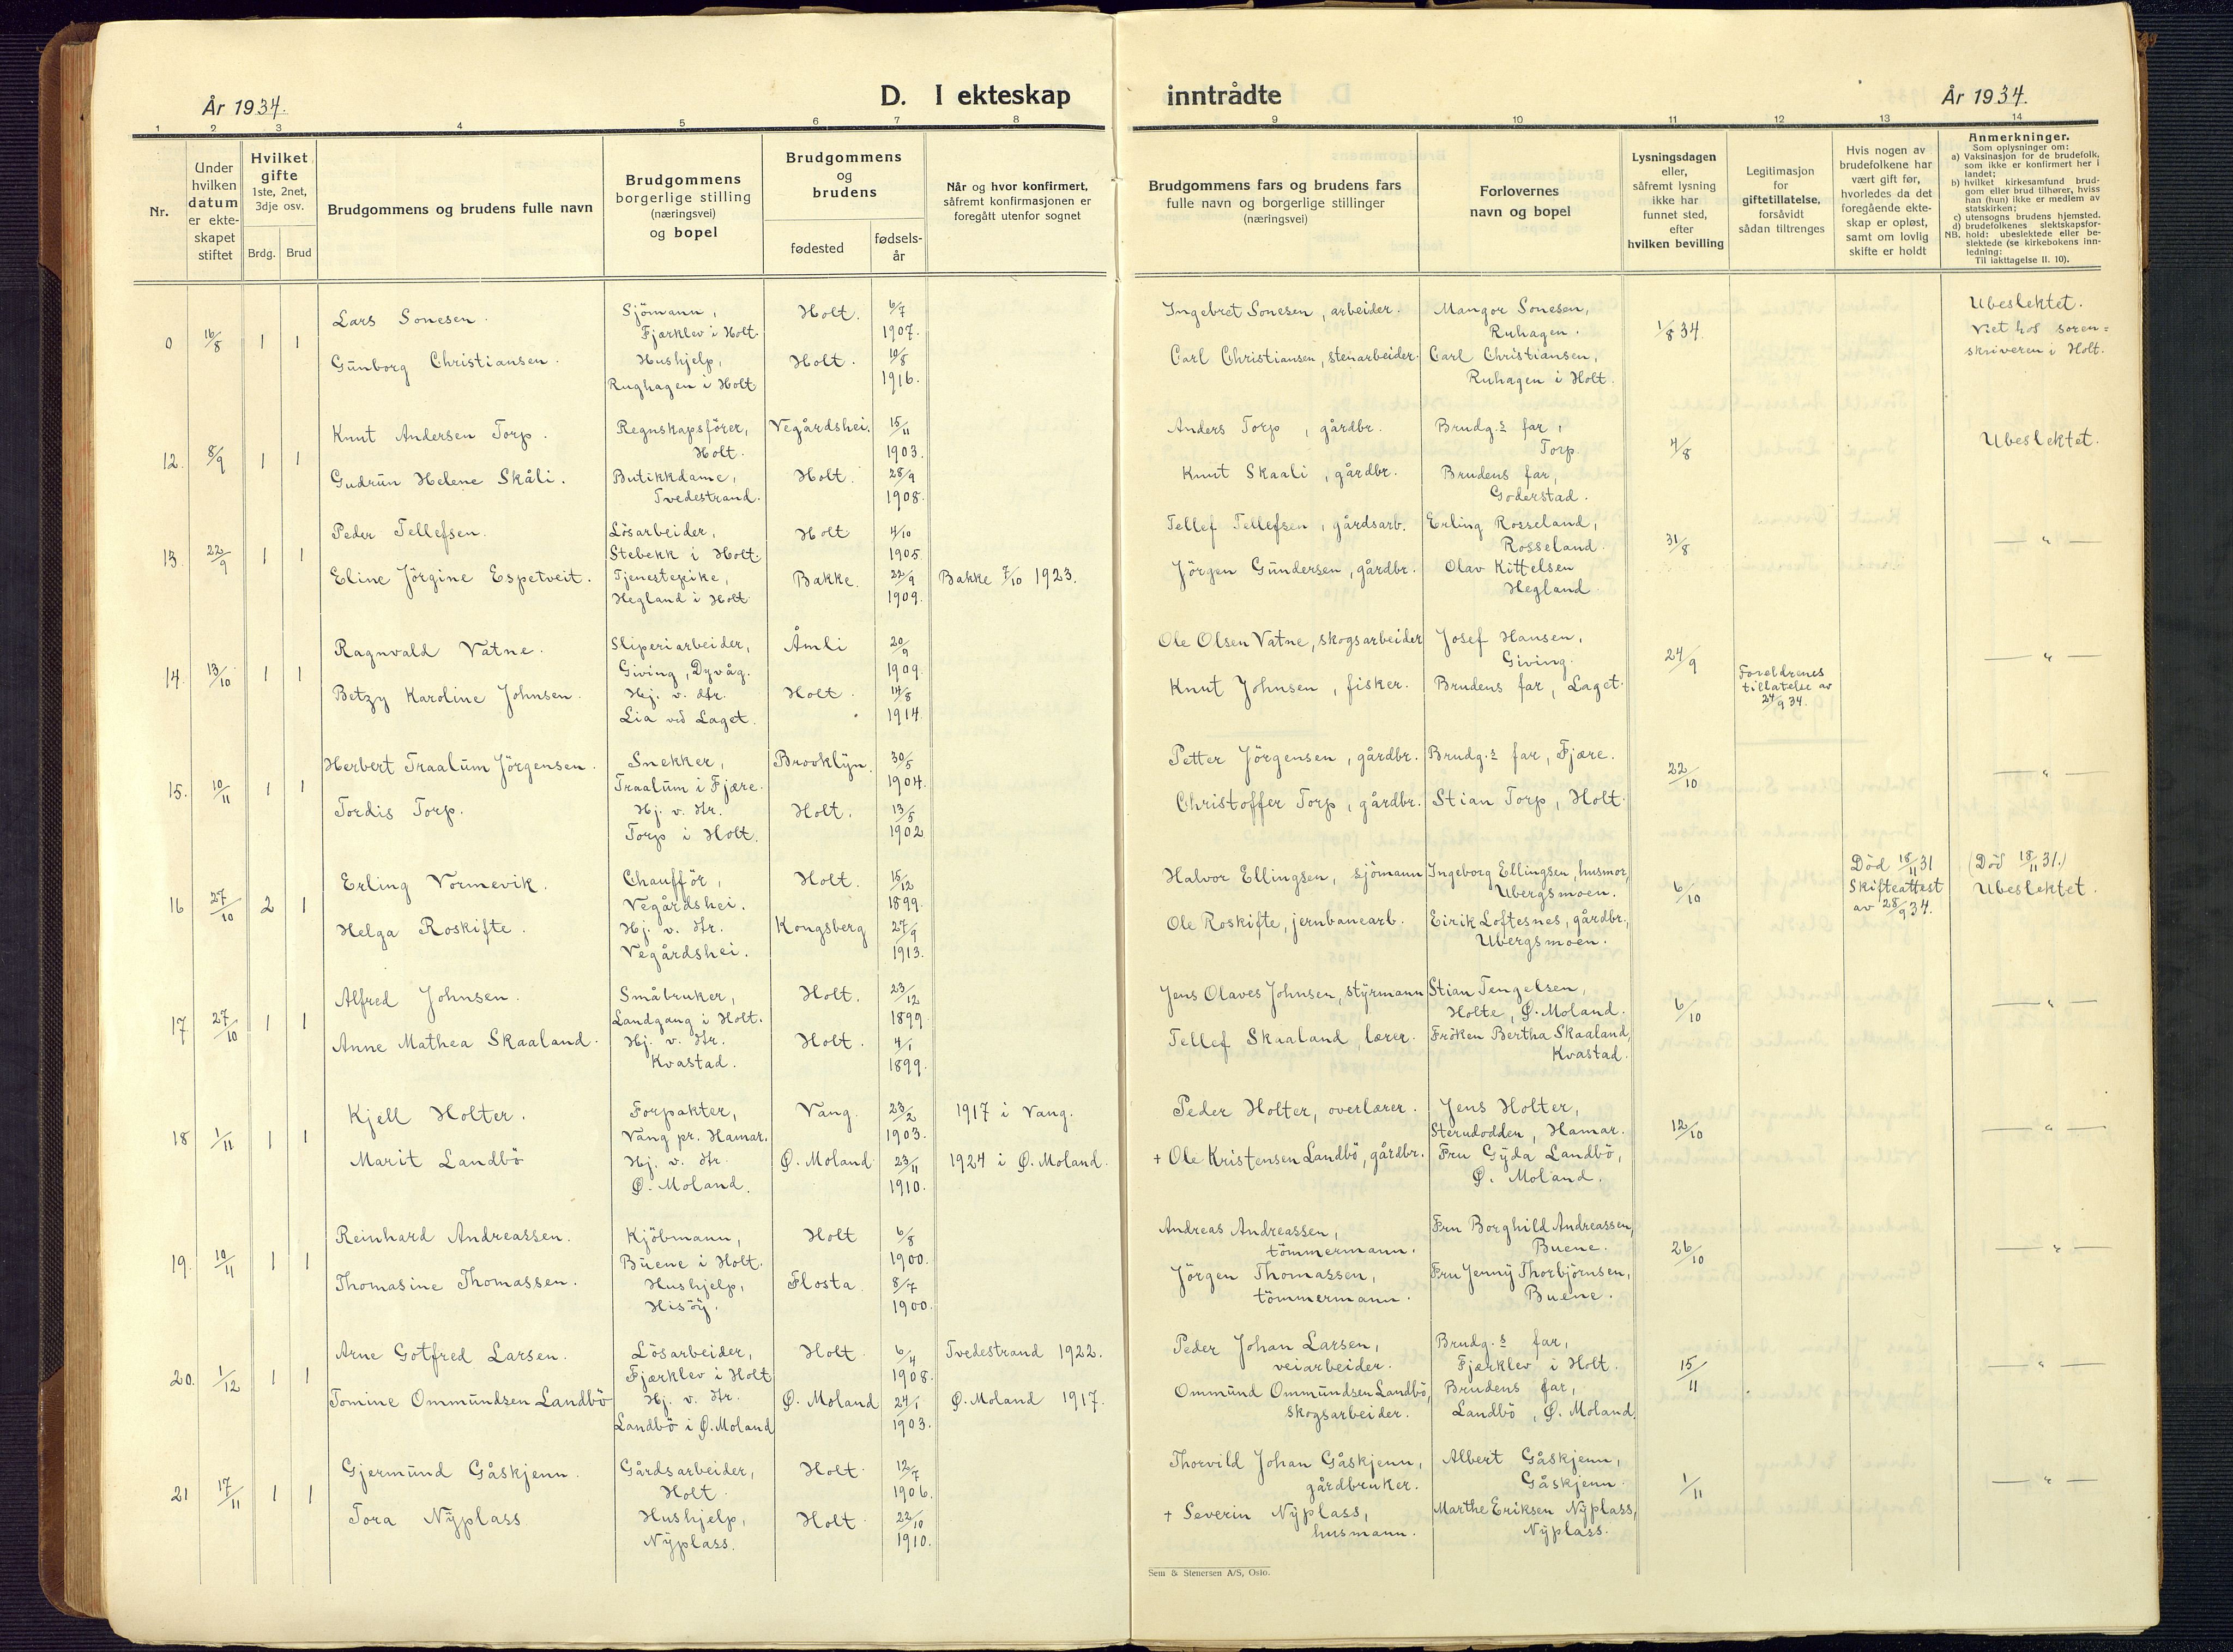 År 1934.
D. I ekteskap
inntrådte
År 1934.
1 2 3 4 5 6 7 8 9 10 11 12 13 14
Nr.
Under hvilken datum er ekte-skapet stiftet
Hvilket gifte 1ste, 2net, 3dje osv.
Brdg. Brud
Brudgommens og brudens fulle navn
Brudgommens borgerlige stilling (næringsvei) og bopel
Brudgommens og brudens
fødested
fødsels-år
Når og hvor konfirmert, såfremt konfirmasjonen er foregått utenfor sognet
Brudgommens fars og brudens fars fulle navn og borgerlige stillinger (næringsvei)
Forlovernes navn og bopel
Lysningsdagen eller, såfremt lysning ikke har funnet sted, efter hvilken bevilling
Legitimasjon for giftetillatelse, forsåvidt sådan tiltrenges
Hvis nogen av brudefolkene har vært gift før, hvorledes da det foregående ekte-skap er opløst, samt om lovlig skifte er holdt
Anmerkninger.
Som oplysninger om:
a) Vaksinasjon for de brudefolk, som ikke er konfirmert her i landet;
b) hvilket kirkesamfund brud-gom eller brud tilhører, hviss han (hun) ikke er medlem av statskirken;
c) utensogns brudens hjemsted.
d) brudefolkenes slektskapsfor-hold: ubeslektede eller be-slektede (se kirkebokens inn-ledning:
NB.
Til iakttagelse II. 10).
0 16/8 1 1
Lars Sonesen. Sjömann, Fjærklev i Holt. Holt. 6/7 1907.
Ingebret Sonesen, arbeider. Mangor Sonesen, Ruhagen. 1/8 34
Ubeslektet. Viet hos soren=skriveren i Holt.
Gunborg Christiansen. Hushjelp, Rughagen i Holt Holt. 10/8 1916.
Carl Christiansen, stenarbeider. Carl Christiansen, Ruhagen i Holt.
12. 8/9 1 1
Knut Andersen Torp. Regnskapsförer, Holt. Vegårdshei. 15/11 1903.
Anders Torp, gårdbr. Brudg.s far, Torp. 4/8 Ubeslektet.
Gudrun Helene Skåli. Butikkdame, Tvedestrand. Holt. 28/9 1908.
Knut Skaali, gårdbr. Brudens far, Goderstad.
13. 22/9 1 1
Peder Tellefsen. Lösarbeider, Stebekk i Holt. Holt 4/10 1905
Tellef Tellefsen, gårdsarb. Erling Rosseland, Rosseland. 31/8 — " —
Eline Jörgine Espetveit. Tjenestepike, Hegland i Holt. Bakke. 22/9 1909. Bakke 7/10 1923.
Jörgen Gundersen, gårdbr. Olav Kittelsen Hegland.
14. 13/10 1 1
Ragnvald Vatne. Sliperiarbeider, Giving, Dyvåg. Åmli 20/9 1909.
Ole Olsen Vatne, skogsarbeider Josef Hansen, Giving. 24/9 — " —
Foreldrenes tillatelse av 24/9 34.
Betzy Karoline Johnsen. Hj. v. dtr. Lia ved Laget. Holt. 14/8 1914.
Knut Johnsen, fisker. Brudens far, Laget.
15. 10/11 1 1
Herbert Traalum Jörgensen. Snekker, Traalum i Fjære. Brooklyn. 30/5 1904.
Petter Jörgensen, gårdbr. Brudg.s far, Fjære. 22/10 — " —
Tordis Torp. Hj. v. dtr. Torp i Holt. Holt. 13/5 1902
Christoffer Torp, gårdbr. Stian Torp, Holt.
16 27/10 2 1
Erling Vormevik. Chaufför, Vegårdshei. Holt. 15/12 1899.
Halvor Ellingsen, sjömann Ingeborg Ellingsen, husmor, Ubergsmoen. 6/10
Död 18/11 31 Skifteattest av 28/9 34.
(Död 18/11 31.) Ubeslektet.
Helga Roskifte. Hj. v. dtr. Vegårdshei. Kongsberg 27/9 1913.
Ole Roskifte, jernbanearb. Eirik Loftesnes, gårdbr., Ubergsmoen.
17 27/10 1 1
Alfred Johnsen. Småbruker, Landgang i Holt. Holt. 23/12 1899
Jens Olaves Johnsen, styrmann Stian Tengelsen, Holte, Ø. Moland. 6/10 — " —
Anne Mathea Skaaland. Hj. v. dtr. Kvastad. Holt. 4/1 1899.
Tellef Skaaland, lærer. Fröken Bertha Skaaland, Kvastad.
18 1/11 1 1
Kjell Holter. Forpakter, Vang pr. Hamar. Vang. 23/2 1903. 1917 i Vang.
Peder Holter, overlærer. Jens Holter, Sterudodden, Hamar. 12/10 — " —
Marit Landbö Hj. v. dtr. Ø. Moland. Ø. Moland 23/11 1910. 1924 i Ø. Moland.
+ Ole Kristensen Landbö, gårdbr. Fru Gyda Landbö, Ø. Moland.
19. 10/11 1 1
Reinhard Andreassen. Kjöbmann, Buene i Holt. Holt 6/8 1900.
Andreas Andreassen, tömmermann. Fru Borghild Andreassen, Buene. 26/10 — " —
Thomasine Thomassen. Hushjelp, Hisöy. Flosta. 8/7 1900.
Jörgen Thomassen, tömmermann. Fru Jenny Thorbjörnsen, Buene.
20. 1/12 1 1
Arne Gotfred Larsen. Lösarbeider, Fjærklev i Holt Holt 6/4 1908. Tvedestrand 1922.
Peder Johan Larsen, veiarbeider. Brudg.s far, Fjærklev i Holt. 15/11 — " —
Tomine Ommundsen Landbö Hj. v. dtr. Landbö i Ø. Moland Ø. Moland 24/1 1903. Ø. Moland 1917.
Ommund Ommundsen Landbö, skogsarbeider. Brudens far, Landbö, Ø. Moland.
21 17/11 1 1
Gjermund Gåskjenn. Gårdsarbeider, Holt. Holt 12/7 1906.
Thorvild Johan Gåskjenn, gårdbruker. Albert Gåskjenn, Gåskjenn. 1/11 — " —
Tora Nyplass Hushjelp, Nyplass. Holt 22/10 1910.
+ Severin Nyplass, husmann. Marthe Eriksen Nyplass, Nyplass.
Sem & Stenersen A/S, Oslo.